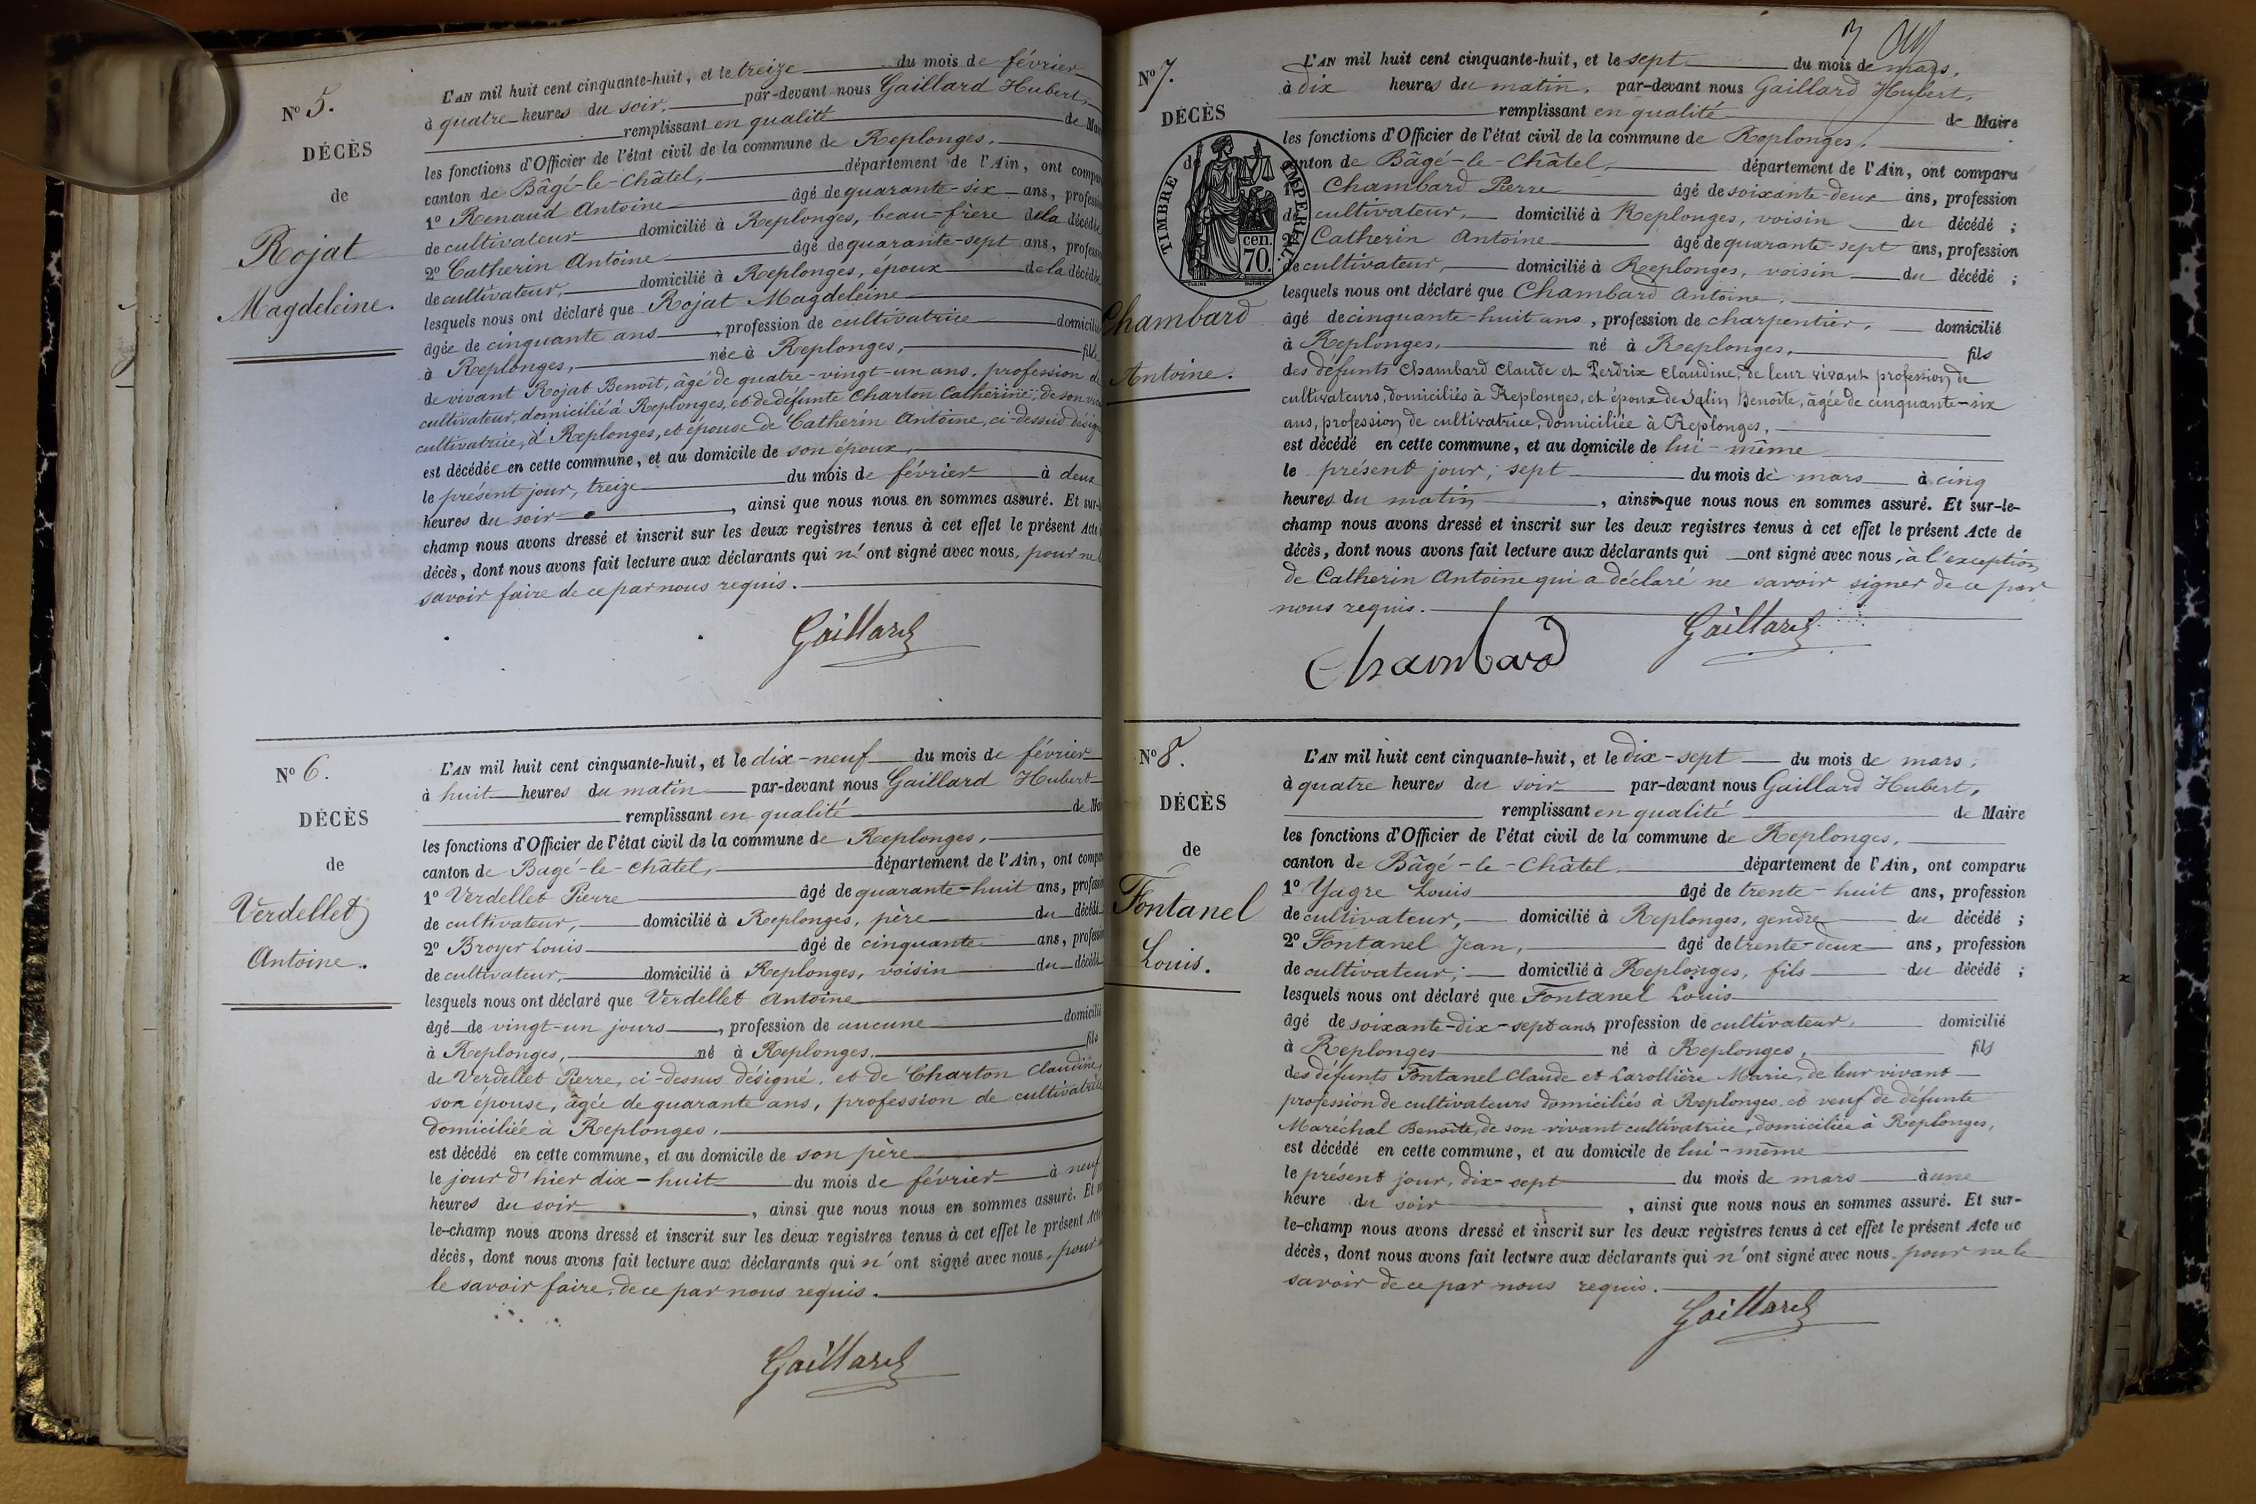 No 5.
DÉCÈS
de
Rojat
Magdeleine.
L'AN mil huit cent cinquante-huit, et le treize du mois de février
à quatre heures du soir, par-devant nous Gaillard Hubert,
remplissant en qualité de Mai
les fonctions d'Officier de l'état civil de la commune de Replonges,
canton de Bâgé-le-Châtel, département de l'Ain, ont compa
1o Renaud Antoine âgé de quarante-six ans, professi
de cultivateur domicilié à Replonges, beau-frère de la décédée
2o Catherin Antoine âgé de quarante-sept ans, professi
de cultivateur, domicilié à Replonges, époux de la décédée
lesquels nous ont déclaré que Rojat Magdeleine
âgée de cinquante ans, profession de cultivatrice domicilié
à Replonges, née à Replonges, fille
de vivant Rojat Benoît, âgé de quatre-vingt-un ans, profession de
cultivateur, domicilié à Replonges, et de défunte Charton Catherine, de son viva
cultivatrice, à Replonges, et épouse de Catherin Antoine, ci-dessus désign
est décédée en cette commune, et au domicile de son époux,
le présent jour, treize du mois de février à deux
heures du soir, ainsi que nous nous en sommes assuré. Et sur-le-
champ nous avons dressé et inscrit sur les deux registres tenus à cet effet le présent Acte
décès, dont nous avons fait lecture aux déclarants qui n'ont signé avec nous, pour ne
savoir faire de ce par nous requis.
Gaillard
No 6.
DÉCÈS
de
Verdellet
Antoine.
L'AN mil huit cent cinquante-huit, et le dix-neuf du mois de février
à huit heures du matin par-devant nous Gaillard Hubert
remplissant en qualité de Mai
les fonctions d'Officier de l'état civil de la commune de Replonges,
canton de Bagé-le-Châtel, département de l'Ain, ont compa
1o Verdellet Pierre âgé de quarante-huit ans, profession
de cultivateur, domicilié à Replonges, père du décédé
2o Broyer Louis âgé de cinquante ans, professi
de cultivateur, domicilié à Replonges, voisin du décédé
lesquels nous ont déclaré que Verdellet Antoine
âgé de vingt-un jours, profession de aucune domicilié
à Replonges, né à Replonges, fils
de Verdellet Pierre, ci-dessus désigné, et de Charton Claudine,
son épouse, âgée de quarante ans, profession de cultivatrice
domiciliée à Replonges.
est décédé en cette commune, et au domicile de son père
le jour d'hier dix-huit du mois de février à neuf
heures du soir, ainsi que nous nous en sommes assuré. Et sur-
le-champ nous avons dressé et inscrit sur les deux registres tenus à cet effet le présent Acte
décès, dont nous avons fait lecture aux déclarants qui n'ont signé avec nous, pour ne
le savoir faire, de ce par nous requis.
Gaillard
No 7.
DÉCÈS
de
TIMBRE IMPERIAL
70 cen.
Chambard
Antoine.
L'AN mil huit cent cinquante-huit, et le sept du mois de mars,
à dix heures du matin, par-devant nous Gaillard Hubert,
remplissant en qualité de Maire
les fonctions d'Officier de l'état civil de la commune de Replonges,
canton de Bâgé-le-Châtel, département de l'Ain, ont comparu
1o Chambard Pierre âgé de soixante-deux ans, profession
de cultivateur, domicilié à Replonges, voisin du décédé ;
2o Catherin Antoine âgé de quarante-sept ans, profession
de cultivateur, domicilié à Replonges, voisin du décédé ;
lesquels nous ont déclaré que Chambard Antoine,
âgé de cinquante-huit ans, profession de charpentier, domicilié
à Replonges, né à Replonges, fils
des défunts Chambard Claude et Perdrix Claudine, de leur vivant profession de
cultivateurs, domiciliés à Replonges, et époux de Salin Benoîte, âgée de cinquante-six
ans, profession de cultivatrice, domiciliée à Replonges,
est décédé en cette commune, et au domicile de lui-même
le présent jour, sept du mois de mars à cinq
heures du matin, ainsi que nous nous en sommes assuré. Et sur-le-
champ nous avons dressé et inscrit sur les deux registres tenus à cet effet le présent Acte de
décès, dont nous avons fait lecture aux déclarants qui ont signé avec nous, à l'exception
de Catherin Antoine qui a déclaré ne savoir signer de ce par
nous requis.
Chambard Gaillard
No 8.
DÉCÈS
de
Fontanel
Louis.
L'AN mil huit cent cinquante-huit, et le dix-sept du mois de mars,
à quatre heures du soir par-devant nous Gaillard Hubert,
remplissant en qualité de Maire
les fonctions d'Officier de l'état civil de la commune de Replonges,
canton de Bâgé-le-Châtel département de l'Ain, ont comparu
1o Yagre Louis âgé de trente-huit ans, profession
de cultivateur, domicilié à Replonges, gendre du décédé ;
2o Fontanel Jean, âgé de trente-deux ans, profession
de cultivateur, domicilié à Replonges, fils du décédé ;
lesquels nous ont déclaré que Fontanel Louis
âgé de soixante-dix-sept ans, profession de cultivateur, domicilié
à Replonges né à Replonges, fils
des défunts Fontanel Claude et Larollière Marie, de leur vivant
profession de cultivateurs domiciliés à Replonges et veuf de défunte
Maréchal Benoîte, de son vivant cultivatrice, domiciliée à Replonges,
est décédé en cette commune, et au domicile de lui-même
le présent jour, dix-sept du mois de mars à une
heure du soir, ainsi que nous nous en sommes assuré. Et sur-
le-champ nous avons dressé et inscrit sur les deux registres tenus à cet effet le présent Acte de
décès, dont nous avons fait lecture aux déclarants qui n'ont signé avec nous, pour ne le
savoir de ce par nous requis.
Gaillard